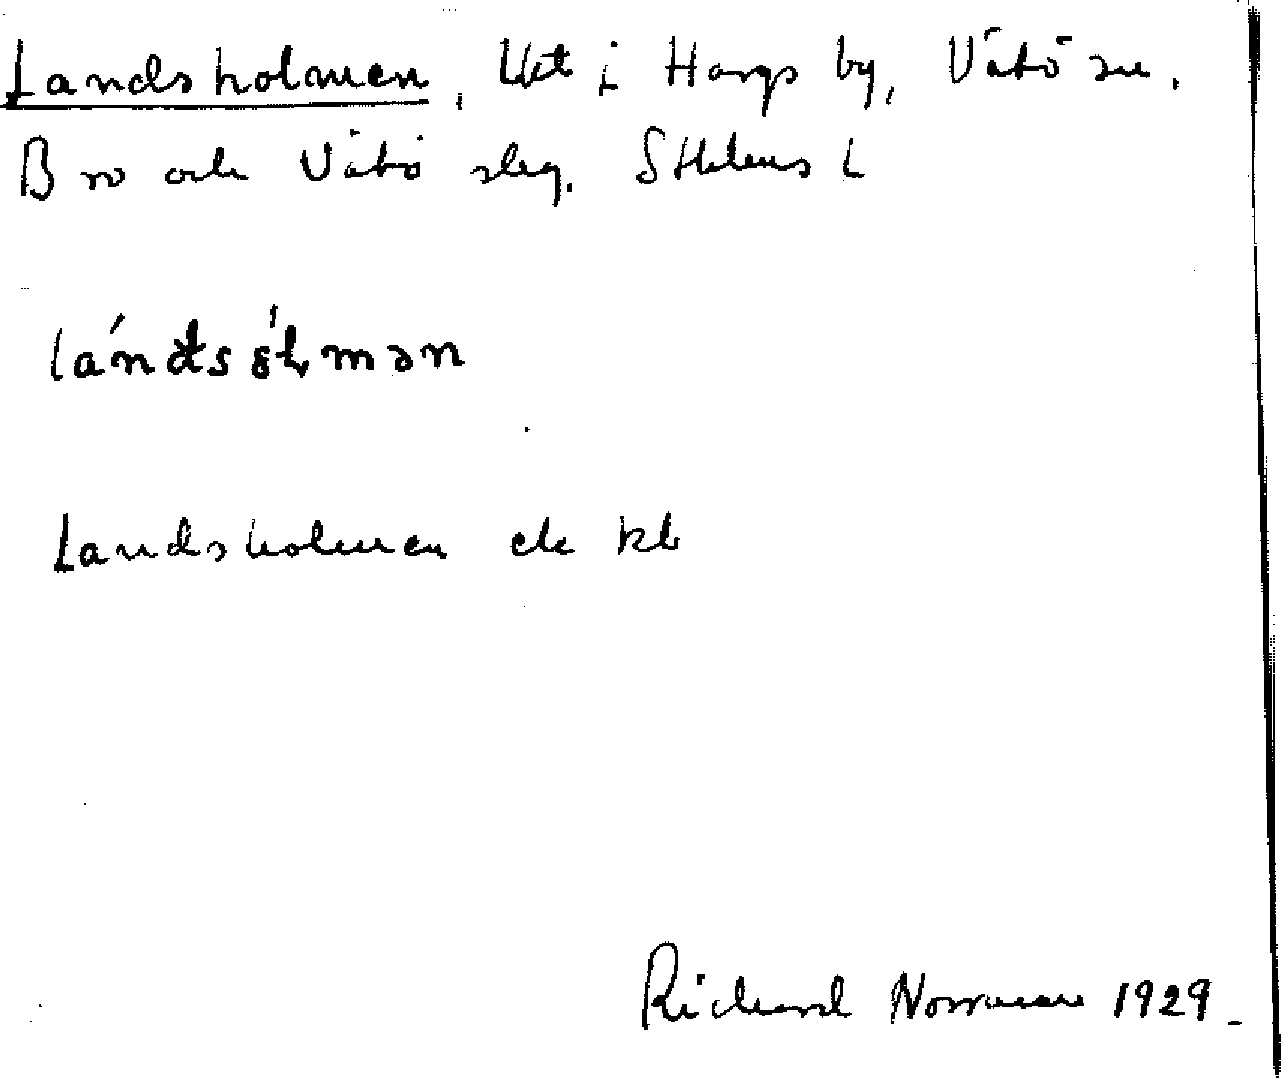 Landsholmen, Ukt i Hargs by, Vätö sn.
Bro och Vätö slg. Sthlms L
Landsholmen ek kb
Richard Norrman 1929